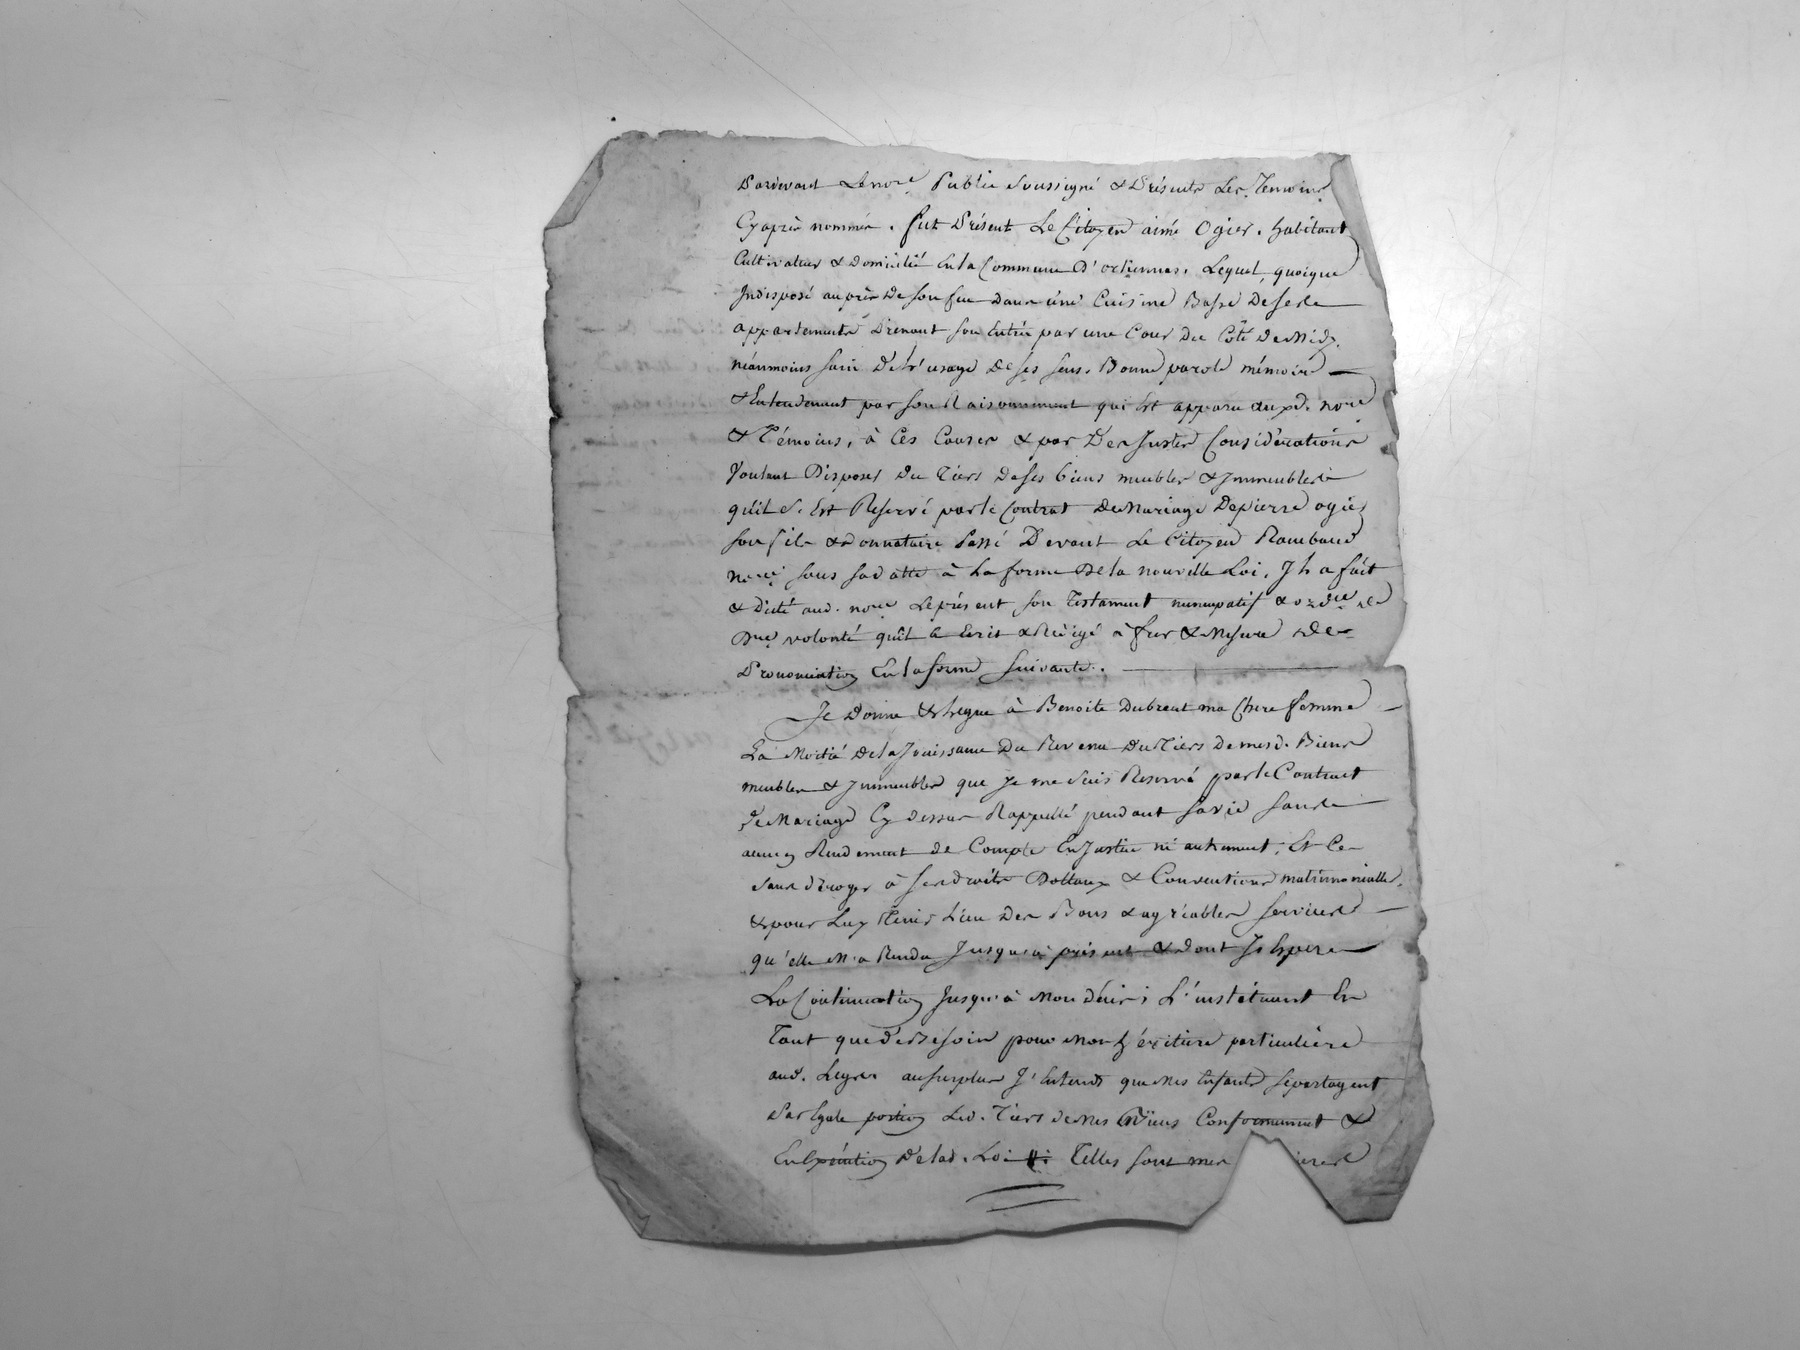 Pardevant Le nore Public Soussigné & Présents Les Temoins
Cyaprès nommés. fut Présent Le Citoyen aimé Ogier. habitant
Cultivateur & Domicilié En la Commune D'ortiennas. Lequel, quoique
Indisposé auprès De Son feu dans une Cuisine Basse De ses
appartements Prenant Son Entrée par une Cour Du Côté De Midy.
néanmoins Sain De L'usage De Ses Sens. Bonne parole mémoire
& Entendement par Son Raisonnement qui Est apparu aux d. nore
& Témoins, à Ces Causes & par Des Justes Considérations
Voulant Disposer Du Tiers De Ses biens meubles & Immeubles
qu'il S. Est Reservé par le Contrat De Mariage De pierre ogier
Son fils & Donnataire Passé Devant Le Citoyen Raimbaud
nore Sous Sa datte à La forme De la nouvelle Loi. Il a fait
& Dicté aud. nore Le présent Son Testament nuncupatif & ordre de
Dre volonté qu'il a Ecrit & Rédigé à fur & Mesure De
Prononciation En la forme Suivante.
Je Donne & Legue à Benoite Dubreut ma Chere femme
La Moitié De la Jouissance Du Revenu Du Tiers De mesd. Biens
meubles & Immeubles que Je me Suis Reservé par le Contract
De Mariage Cy dessus Rappellé pendant Sa vie Sans
aucun Rendement de Compte En Justice ni autrement, Et Ce
Sans déroger à Ses droits Dottaux & Conventions matrimonialles.
& pour Luy Tenir Lieu Des Bons & agréables Services
qu'elle M'a Rendu Jusqu'à présent & Dont J'Espere
La Continuation Jusqu'à Mon décès; L'instituant En
Tant que De Besoin pour Mon héritière particulière
aud. Legs. au Surplus J'Entends que Mes Enfants Se partagent
Par Egale portion Led. Tiers de Mes Biens Conformement &
En Exécution De lad. Loi Telles Sont mes